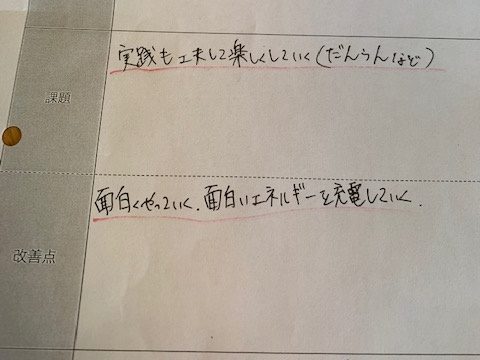 課題
実践も工夫して楽しくしていく(だんらんなど)
改善点
面白くやっていく、面白いエネルギーを充電していく.